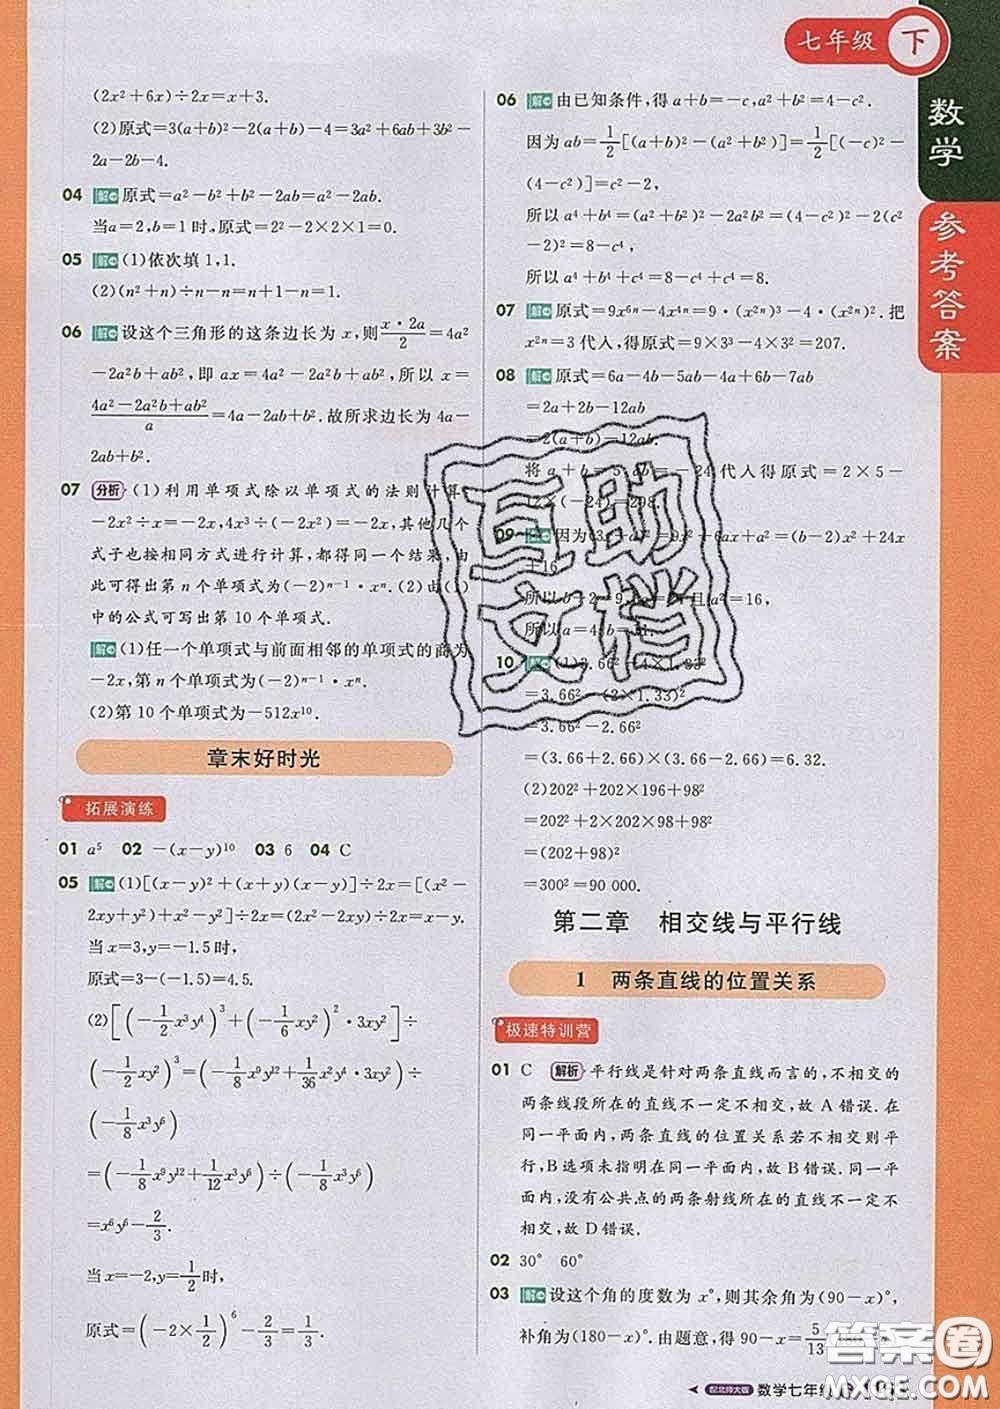 七年级 下
数学
参考答案
(2x²+6x)÷2x=x+3.
(2)原式=3(a+b)²-2(a+b)-4=3a²+6ab+3b²-
2a-2b-4.
04 解 原式=a²-b²+b²-2ab=a²-2ab.
当a=2,b=1时,原式=2²-2×2×1=0.
05 解 (1)依次填1,1.
(2)(n²+n)÷n-n=n+1-n=1.
06 解 设这个三角形的这条边长为 x,则(x·2a)/2=4a²
-2a²b+ab²,即 ax=4a²-2a²b+ab²,所以 x=
(4a²-2a²b+ab²)/a=4a-2ab+b².故所求边长为 4a-
2ab+b².
07 分析 (1)利用单项式除以单项式的法则计算
-2x²÷x=-2x,4x³÷(-2x²)=-2x,其他几个
式子也按相同方式进行计算,都得同一个结果,由
此可得出第 n 个单项式为(-2)ⁿ⁻¹·xⁿ.(2)由(1)
中的公式可写出第 10 个单项式.
解 (1)任一个单项式与前面相邻的单项式的商为
-2x,第 n 个单项式为(-2)ⁿ⁻¹·xⁿ.
(2)第 10 个单项式为-512x¹⁰.
章末好时光
拓展演练
01 a⁵ 02 -(x-y)¹⁰ 03 6 04 C
05 解 (1)[(x-y)²+(x+y)(x-y)]÷2x=[(x²-
2xy+y²)+x²-y²]÷2x=(2x²-2xy)÷2x=x-y.
当 x=3,y=-1.5时,
原式=3-(-1.5)=4.5.
(2)[(-1/2x³y⁴)³+(-1/6xy²)²·3xy²]÷
(-1/2xy²)³=(-1/8x⁹y¹²+1/36x²y⁴·3xy²)÷
(-1/8x³y⁶)
=(-1/8x⁹y¹²+1/12x³y⁶)÷(-1/8x³y⁶)
=x⁶y⁶-2/3.
当 x=-2,y=1/2时,
原式=(-2×1/2)⁶-2/3=1/3.
06 解 由已知条件,得 a+b=-c,a²+b²=4-c².
因为 ab=1/2[(a+b)²-(a²+b²)]=1/2[(-c)²-
(4-c²)]=c²-2,
所以 a⁴+b⁴=(a²+b²)²-2a²b²=(4-c²)²-2(c²
-2)²=8-c⁴,
所以 a⁴+b⁴+c⁴=8-c⁴+c⁴=8.
07 解 原式=9x⁶ⁿ-4x⁴ⁿ=9·(x²ⁿ)³-4·(x²ⁿ)².把
x²ⁿ=3代入,得原式=9×3³-4×3²=207.
08 解 原式=6a-4b-5ab-4a+6b-7ab
=2a+2b-12ab
=2(a+b)-12ab.
将 a+b=5,ab=-24代入得原式=2×5-
12×(-24)=298.
09 解 因为(3x+a)²=9x²+6ax+a²=(b-2)x²+24x
+16,
所以 b-2=9,6a=24且 a²=16,
所以 a=4,b=11.
10 解 (1)3.66²-4×1.33²
=3.66²-(2×1.33)²
=3.66²-2.66²
=(3.66+2.66)×(3.66-2.66)=6.32.
(2)202²+202×196+98²
=202²+2×202×98+98²
=(202+98)²
=300²=90 000.
第二章 相交线与平行线
1 两条直线的位置关系
极速特训营
01 C 解析 平行线是针对两条直线而言的,不相交的
两条线段所在的直线不一定不相交,故 A 错误.在
同一平面内,两条直线的位置关系若不相交则平
行,B选项未指明在同一平面内,故 B 错误.同一平
面内,没有公共点的两条射线所在的直线不一定不
相交,故 D 错误.
02 30° 60°
03 解 设这个角的度数为 x°,则其余角为(90-x)°,
补角为(180-x)°.由题意,得 90-x=5/13
配北师大版 数学七年级
互助文档
答案圈